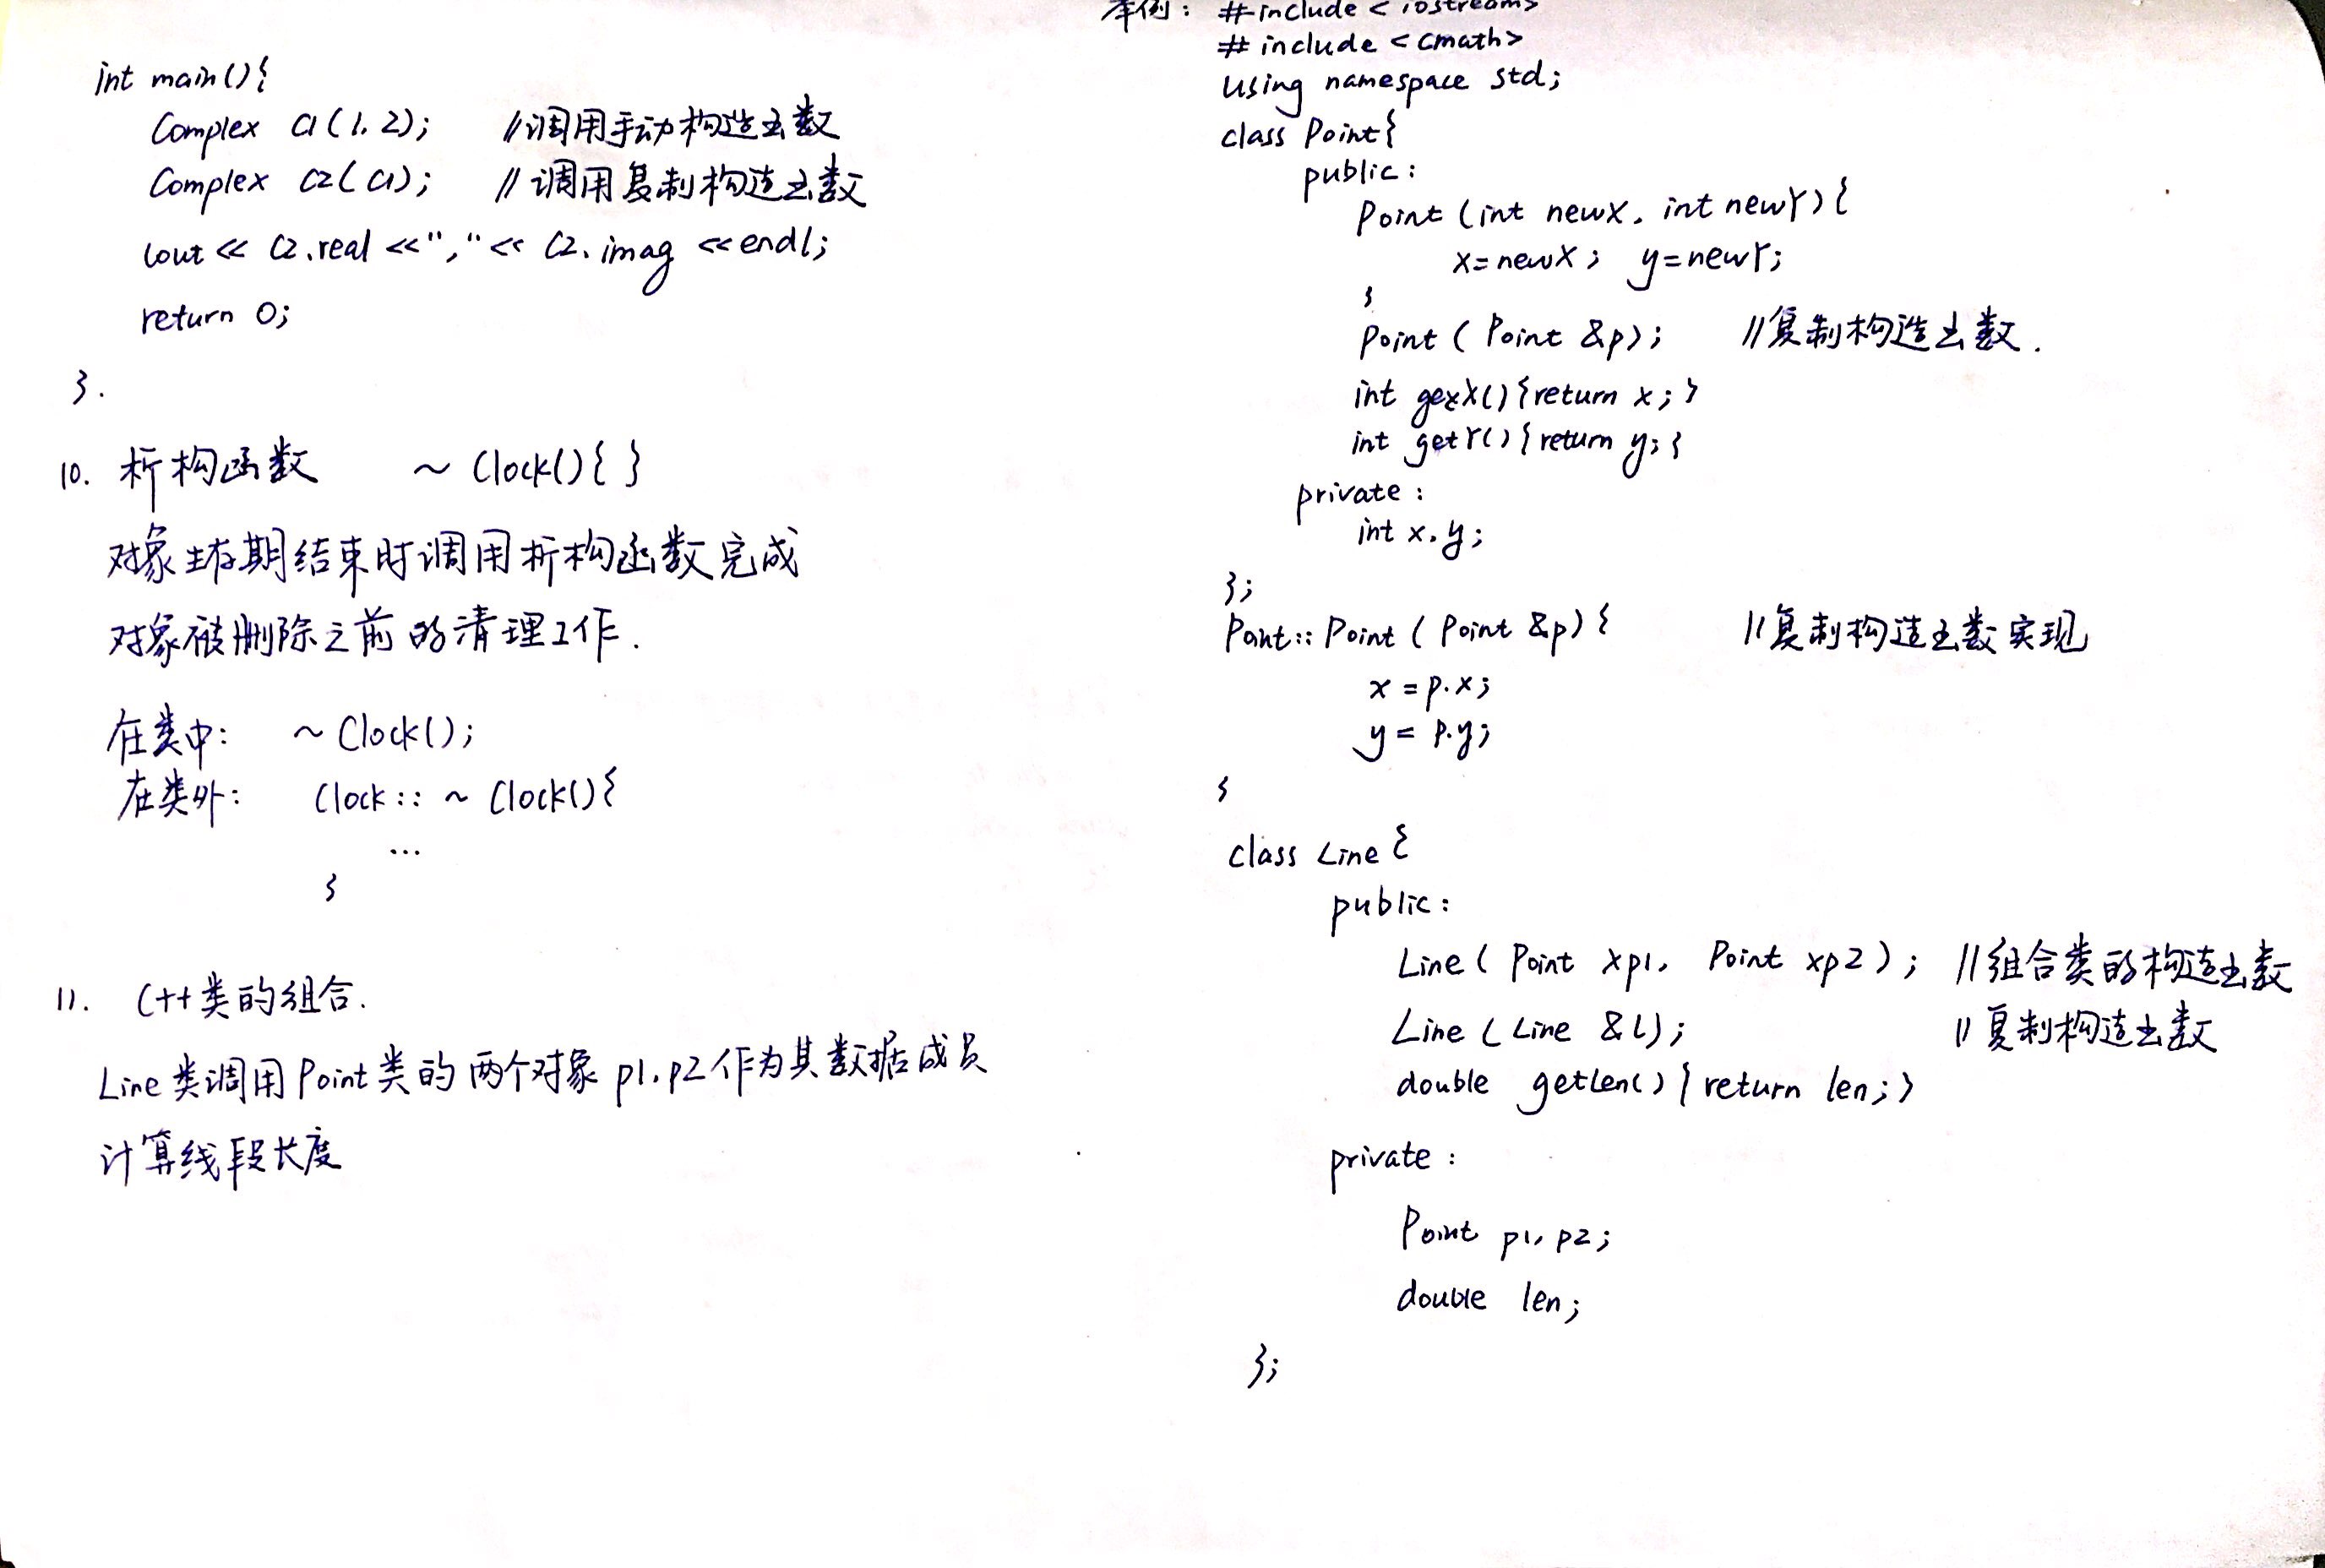 int main(){
Complex c1(1,2); //调用手动构造函数
Complex c2(c1); //调用复制构造函数
cout << c2.real <<","<< c2.imag <<endl;
return 0;
}.
10. 析构函数 ~Clock(){ }
对象生存期结束时调用析构函数完成
对象被删除之前的清理工作.
在类中: ~Clock();
在类外: Clock::~Clock(){
...
}
11. C++类的组合.
Line类调用Point类的两个对象p1,p2作为其数据成员
计算线段长度
举例: #include <iostream>
#include <cmath>
using namespace std;
class Point{
public:
Point (int newX, int newY){
x=newX; y=newY;
}
Point ( Point &p); //复制构造函数.
int gexX(){return x;}
int getY(){return y;}
private:
int x,y;
};
Point::Point ( Point &p){ //复制构造函数实现
x = p.x;
y = p.y;
}
class Line{
public:
Line( Point xp1, Point xp2); //组合类的构造函数
Line (Line &l); //复制构造函数
double getLen(){return len;}
private:
Point p1,p2;
double len;
};